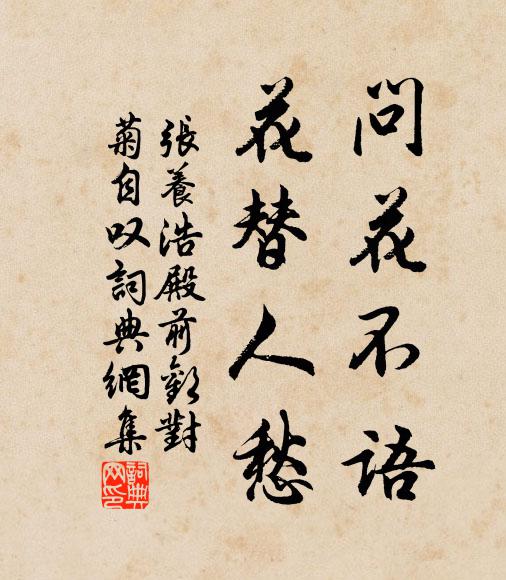 問花不語
花替人愁
張養浩殿前歡對
菊自叹詞典網集
詞典
网印